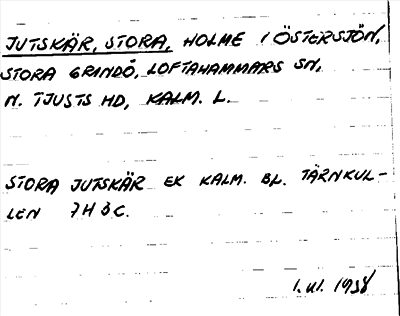 JUTSKÄR, STORA, HOLME I ÖSTERSJÖN,
STORA GRINDÖ, LOFTAHAMMARS SN,
N. TJUSTS HD, KALM. L.
STORA JUTSKÄR EK KALM. BL. TÄRNKUL-
LEN 7H3C.